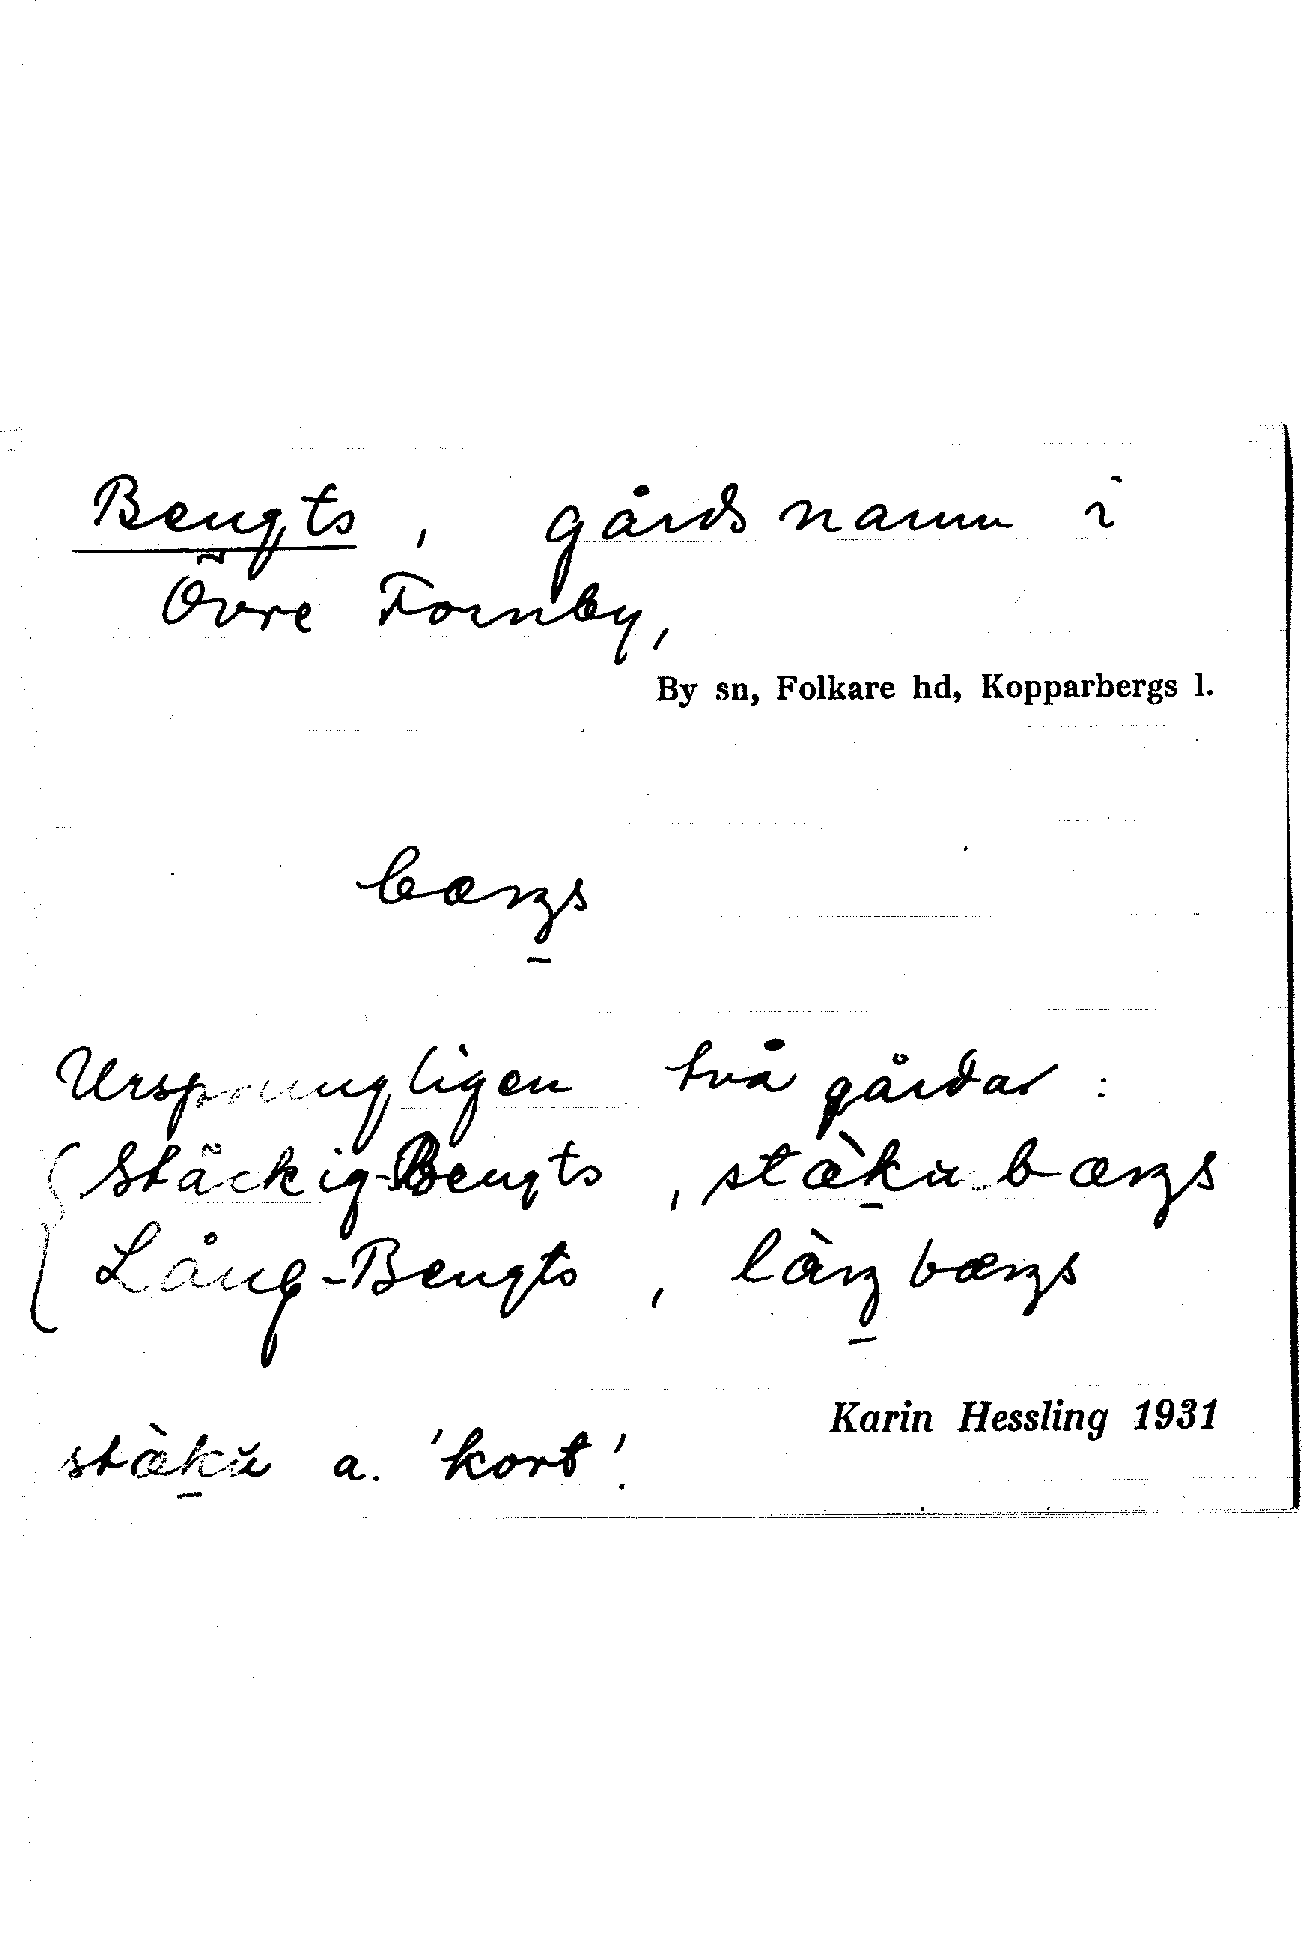 Bengts, gårdsnamn i
Övre Fornby,
By sn, Folkare hd, Kopparbergs l.
bæŋs
Ursprungligen två gårdar:
Stäckig-Bengts, stæ̀ku bæŋs
Lång-Bengts, làŋ bæŋs
Karin Hessling 1931
stæ̀ku a. 'kort'.